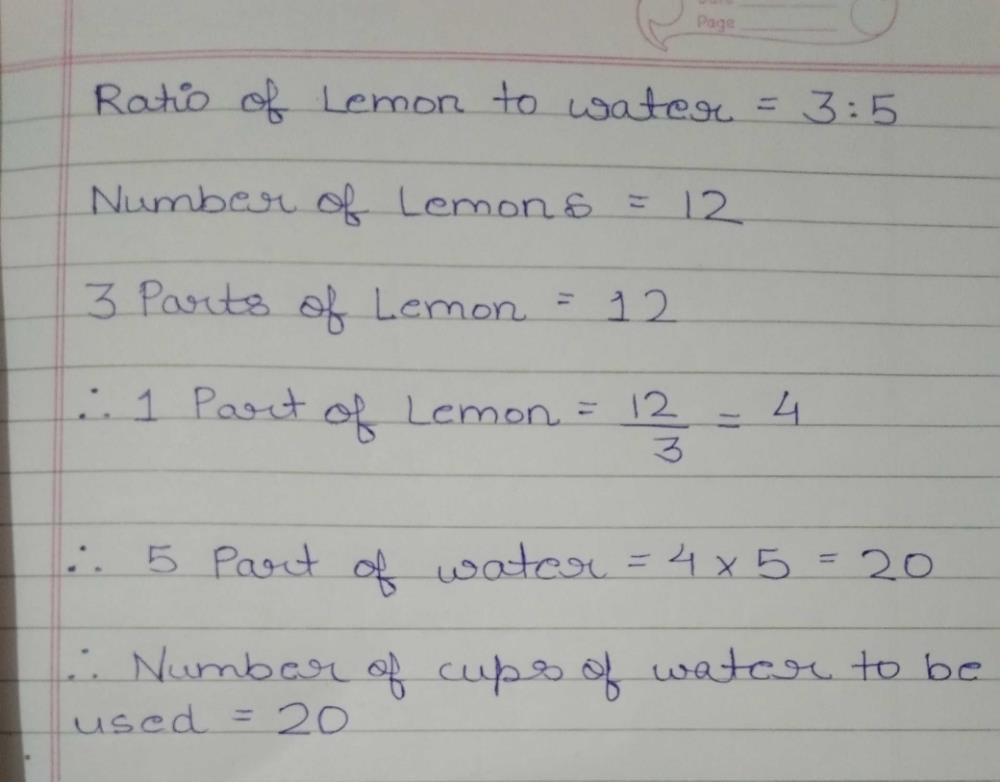 Page
Ratio of Lemon to water = 3:5
Number of Lemons = 12
3 Parts of Lemon = 12
∴ 1 Part of Lemon = 12/3 = 4
∴ 5 Part of water = 4 × 5 = 20
∴ Number of cups of water to be
used = 20